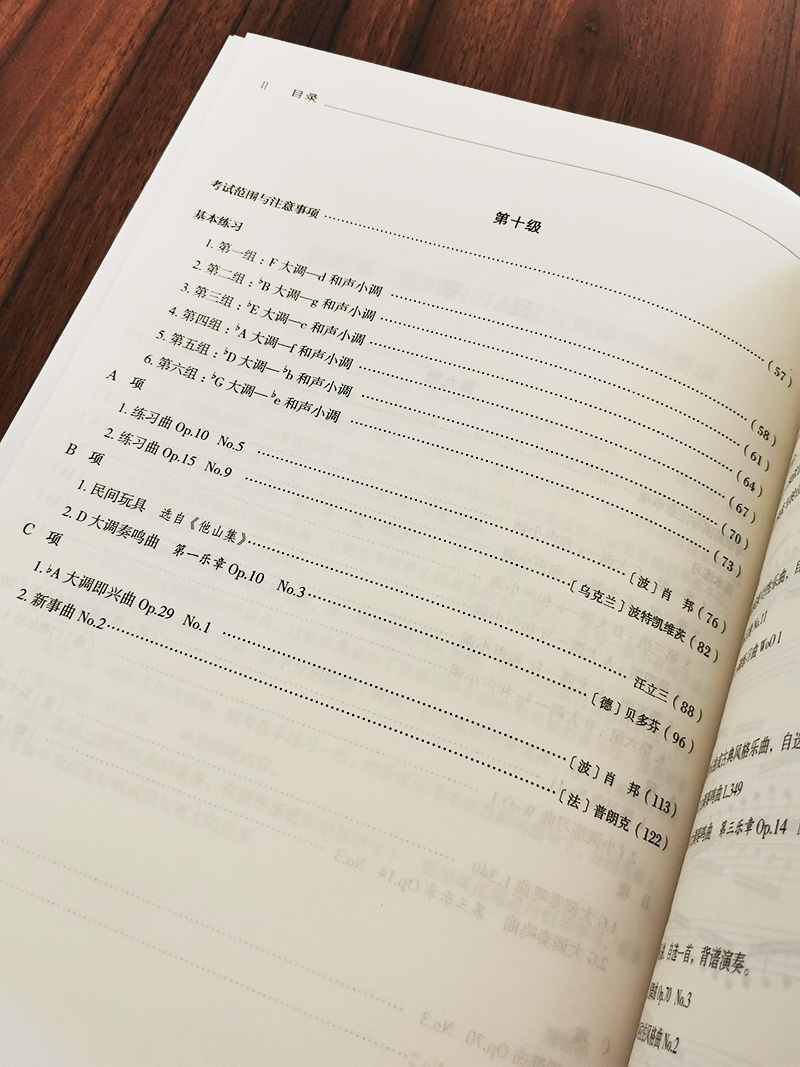 II 目录
第十级
考试范围与注意事项 (57)
基本练习
1. 第一组：F 大调—d 和声小调 (58)
2. 第二组：♭B 大调—g 和声小调 (61)
3. 第三组：♭E 大调—c 和声小调 (64)
4. 第四组：♭A 大调—f 和声小调 (67)
5. 第五组：♭D 大调—♭b 和声小调 (70)
6. 第六组：♭G 大调—♭e 和声小调 (73)
A 项
1. 练习曲 Op.10 No.5 〔波〕肖 邦 (76)
2. 练习曲 Op.15 No.9 〔乌克兰〕波特凯维茨 (82)
B 项
1. 民间玩具 选自《他山集》 汪立三 (88)
2. D 大调奏鸣曲 第一乐章 Op.10 No.3 〔德〕贝多芬 (96)
C 项
1. ♭A 大调即兴曲 Op.29 No.1 〔波〕肖 邦 (113)
2. 新事曲 No.2 〔法〕普朗克 (122)
古典风格乐曲，自选
奏鸣曲 L.349
奏鸣曲 第三乐章 Op.14
自选一首，背谱演奏。
Op.70 No.3
风格曲 No.2